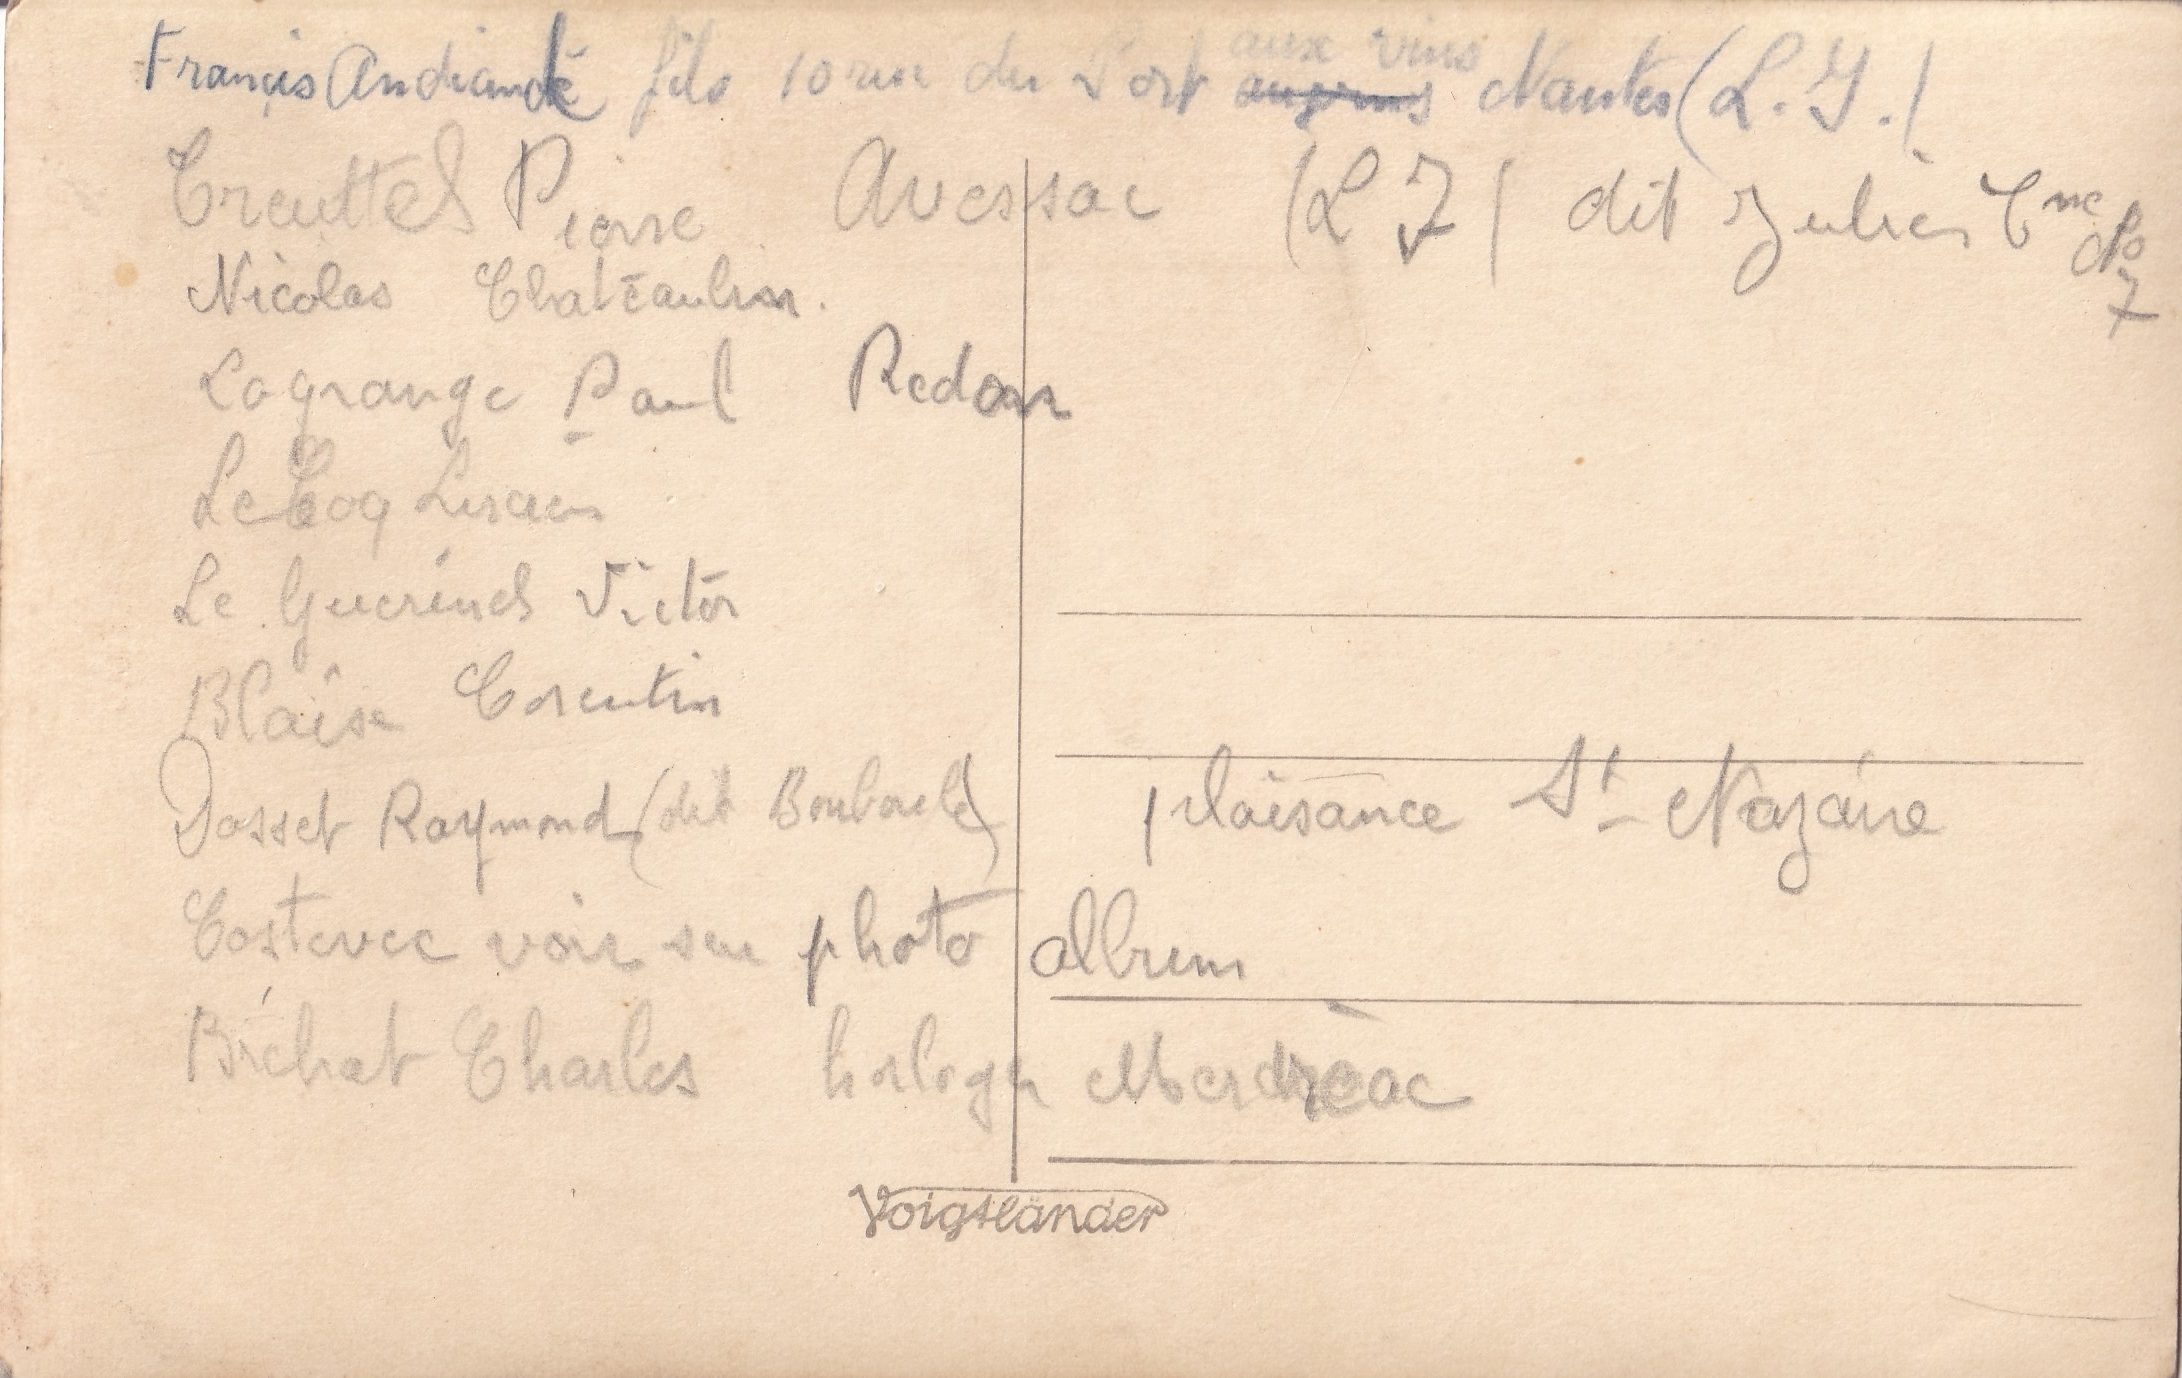 Francis Andiandé fils 10 rue du Port aux vins Nantes (L. I.)
Treuttel Pierre Avessac (L I) dit Julien Cne No 7
Nicolas Chatéaulin.
Lagrange Paul Redon
Le Coq Lucien
Le Guérinel Victor
Blaise Corentin
Dosset Raymond (dit Bouboule) plaisance St Nazaire
Costevec voir sur photo album
Bréhat Charles horloger Merdréac
Voigtländer